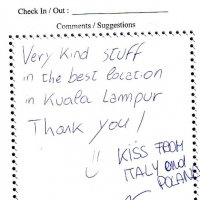 Check In / Out :
Comments / Suggestions
Very kind stuff
in the best location
in Kuala Lampur
Thank you!
KISS FROM
ITALY and
POLAND